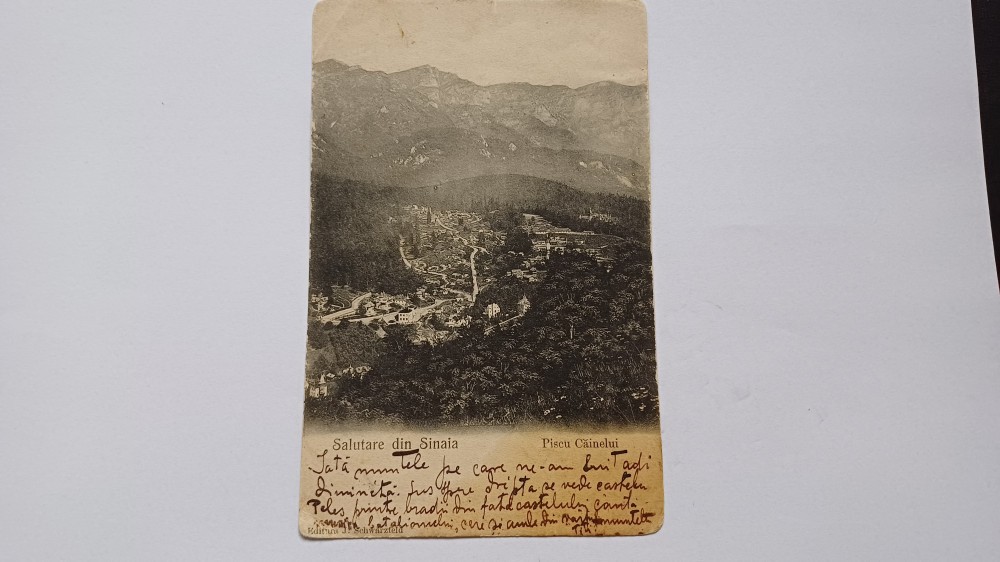 Salutare din Sinaia Piscu Câinelui
Iată muntele pe care ne-am suit azi
diminéță. Sus spre dripta se vede castelu
Peleș, printre bradii din fata castelului cântă
batalionului, cere și din muntele
Editura J. Schwarzfeld